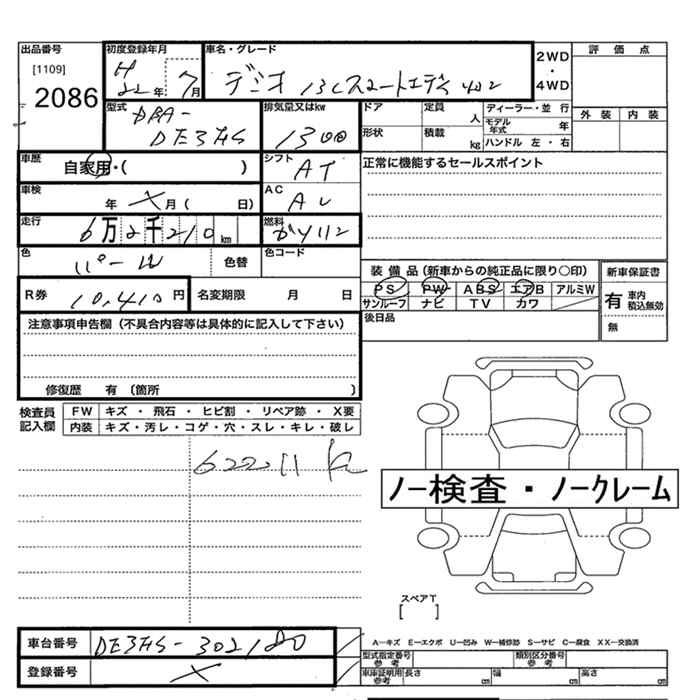 出品番号
[1109]
2086
初度登録年月
H 22年 7月
車名・グレード
デミオ 13Cスマートエディ
2WD
・
4WD
評価点
外装 内装
型式
DBA-
DE3FS
排気量又はkw
1300
ドア
定員 人
ディーラー・並 行
モデル年式 年
形状
積載 kg
ハンドル 左・右
車歴
自家用・( )
シフト
AT
正常に機能するセールスポイント
車検
年 月( 日)
AC
走行
6万2千210km
燃料
ガソリン
色
パール
色替
色コード
装備品(新車からの純正品に限り○印)
新車保証書
PS PW ABS エアB アルミW
サンルーフ ナビ TV カワ
有 車内積込無効
無
R券
10,410円
名変期限 月 日
後日品
注意事項申告欄(不具合内容等は具体的に記入して下さい)
修復歴 有(箇所 )
検査員記入欄
FW キズ・飛石・ヒビ割・リペア跡・X要
内装 キズ・汚レ・コゲ・穴・スレ・キレ・破レ
62211
ノー検査・ノークレーム
スペアT
[ ]
車台番号
DE3FS-302180
登録番号
A−キズ E−エクボ U−凹み W−補修跡 S−サビ C−腐食 XX−交換済
型式指定番号 参考
類別区分番号 参考
車庫証明用 参考 長さ cm 幅 cm 高さ cm